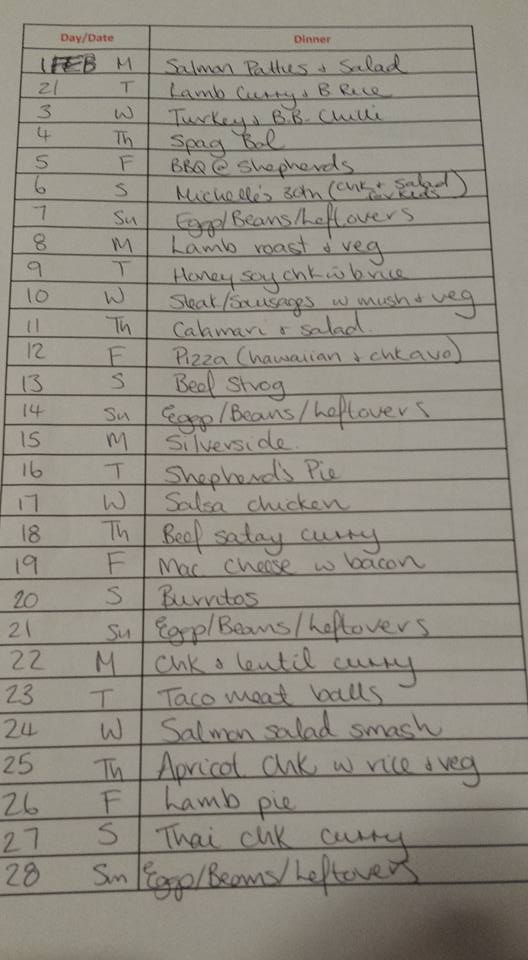 Day/Date Dinner
1 FEB M Salmon Patties + Salad
21 T Lamb Curry + B. Rice
3 W Turkey + B.B. Chilli
4 Th Spag Bol
5 F BBQ @ Shepherds
6 S Michelle's 30th (Chk + Salad for kids)
7 Su Eggs/Beans/Leftovers
8 M Lamb roast + veg
9 T Honey soy chk w b rice
10 W Steak/Sausages w mush + veg
11 Th Calamari + salad.
12 F Pizza (hawaiian + chk avo)
13 S Beef Strog
14 Su Eggs/Beans/Leftovers
15 M Silverside.
16 T Shepherd's Pie
17 W Salsa chicken
18 Th Beef satay curry
19 F Mac cheese w bacon
20 S Burritos
21 Su Eggs/Beans/Leftovers
22 M Chk + lentil curry
23 T Taco meat balls
24 W Salmon salad smash
25 Th Apricot Chk w rice + veg
26 F Lamb pie
27 S Thai chk curry
28 Sun Eggs/Beans/Leftovers